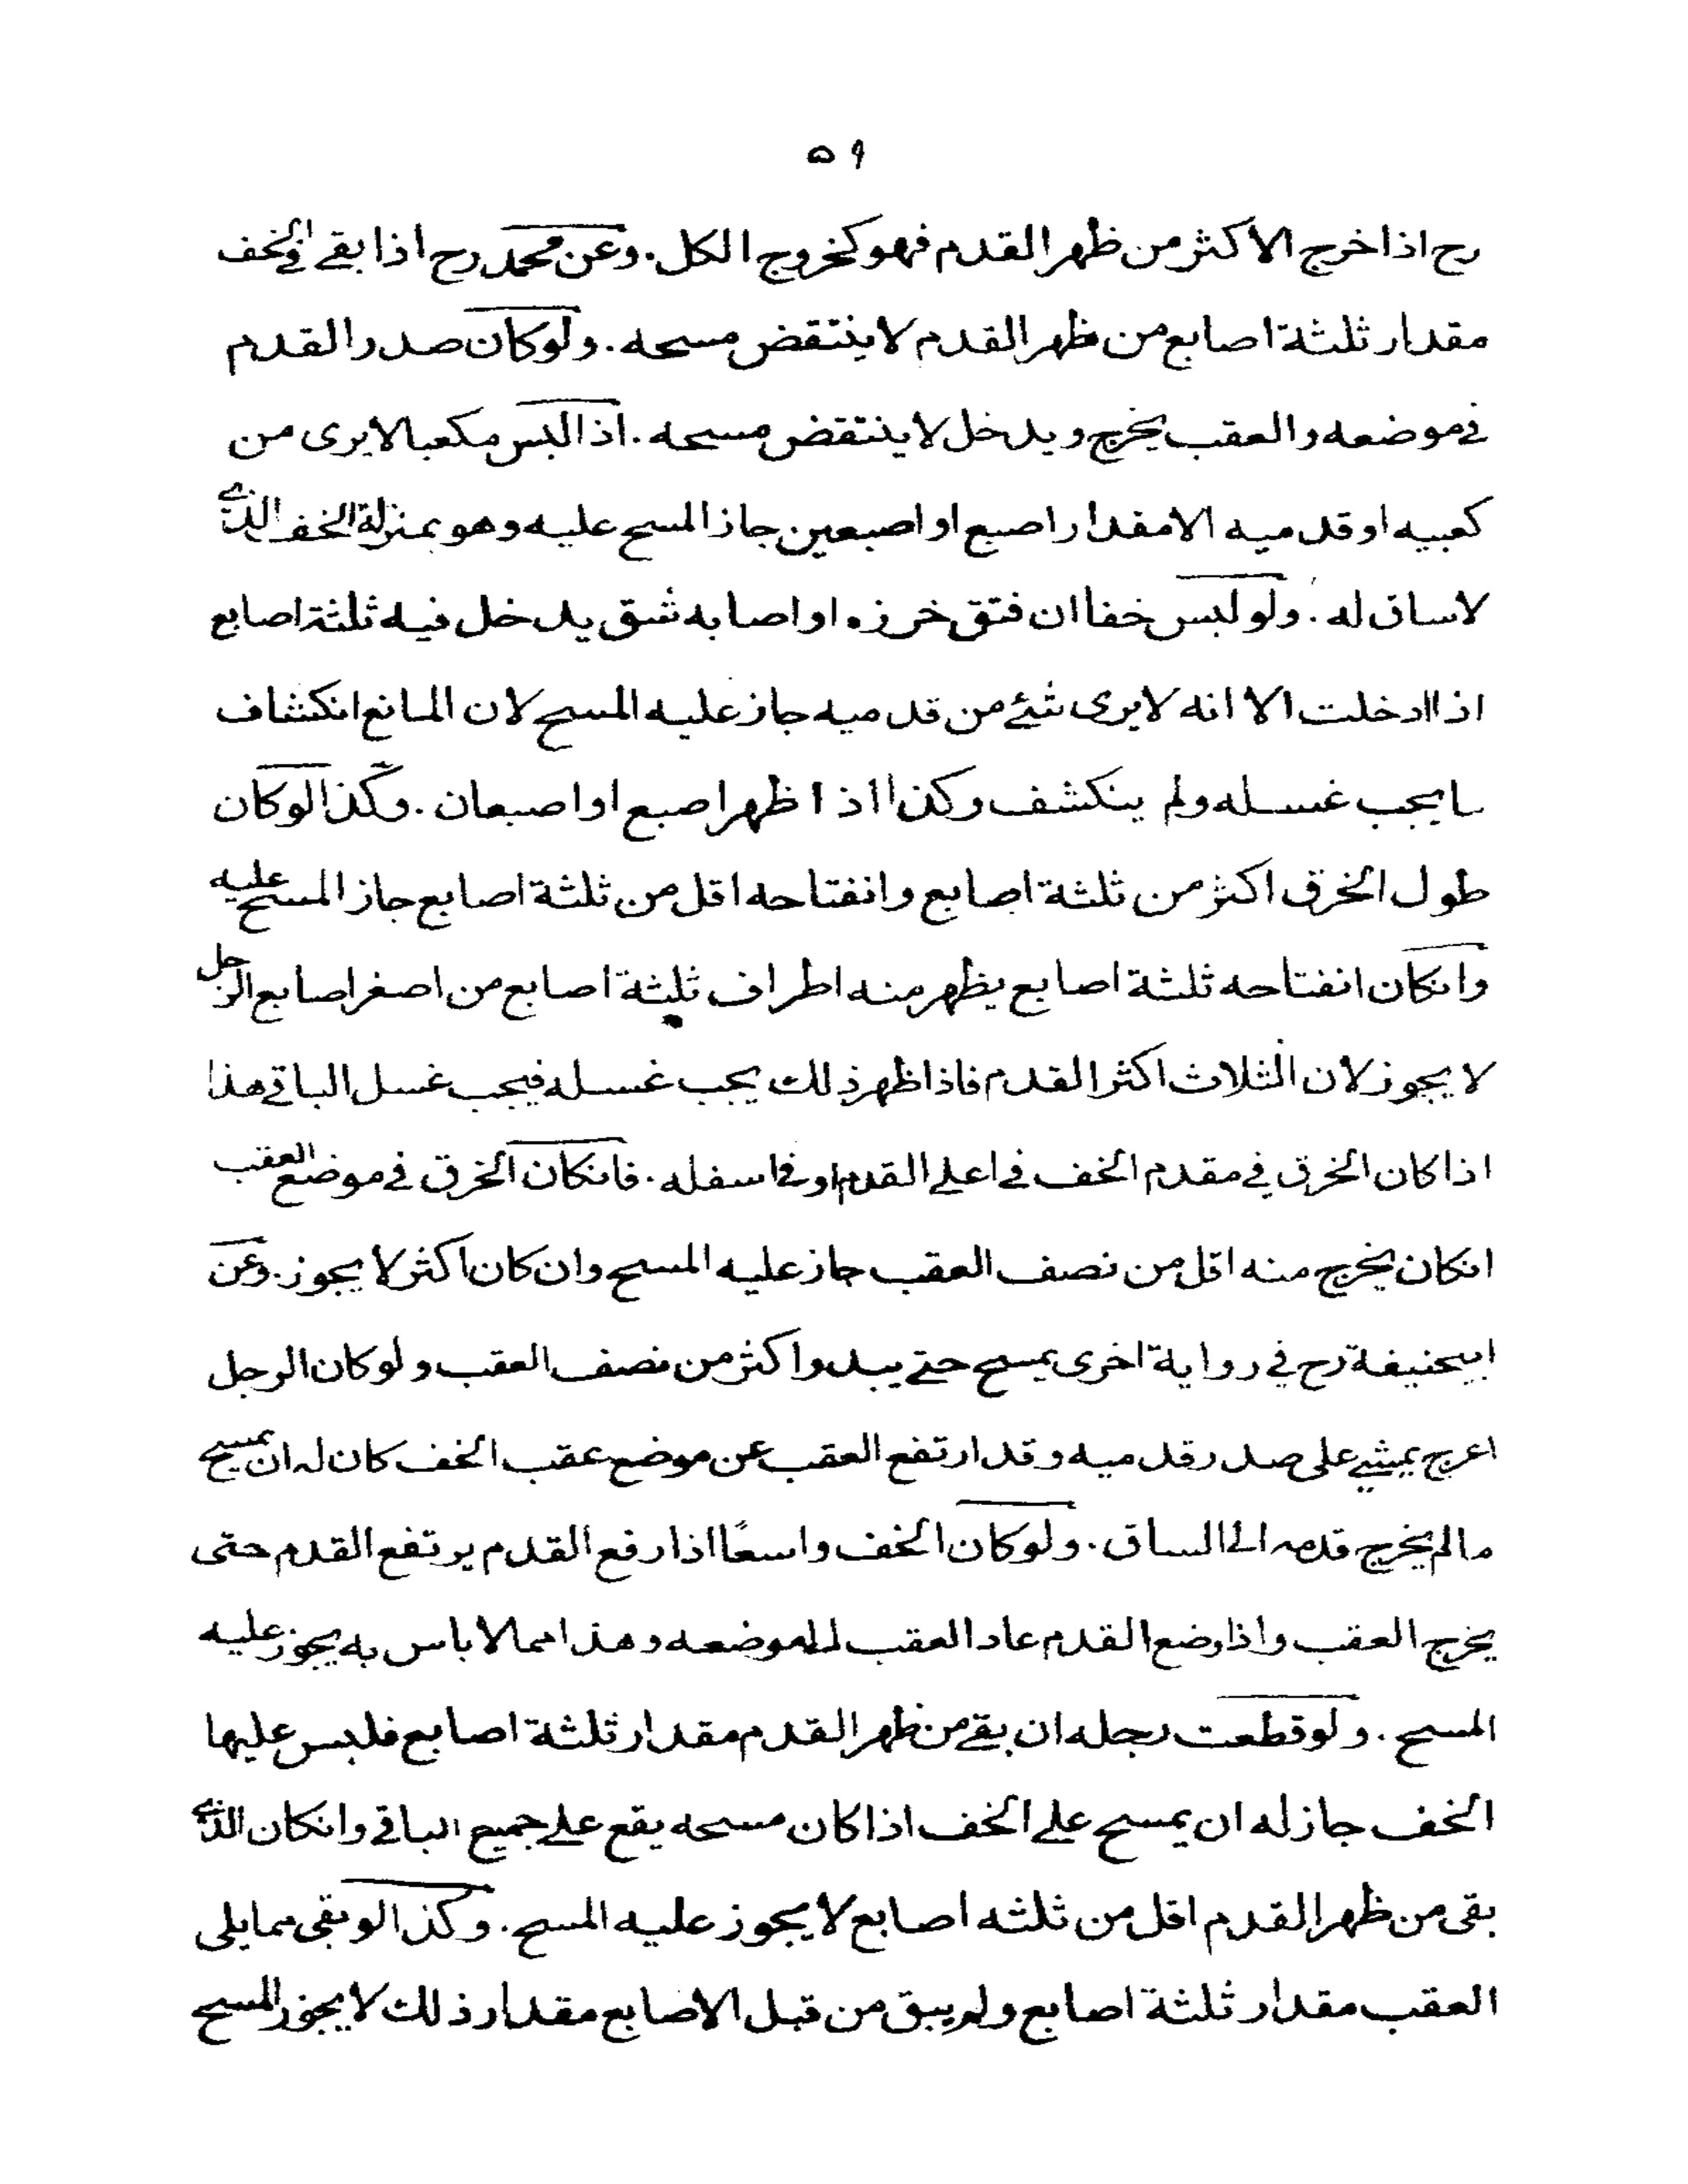 ٥٩
رح اذا خرج الاكثر من ظهر القدم فهو كخروج الكل. وعن محمد رح اذا بقے فے الخف
مقدار ثلثة اصابع من ظهر القدم لا ينتقض مسحه. ولو كان صدر القدم
فے موضعه والعقب يخرج ويدخل لا ينتقض مسحه. اذا لبس مكعبا لا يرى من
كعبيه او قدميه الا مقدار اصبع او اصبعين جاز المسح عليه وهو بمنزلة الخف الذے
لا ساق له. ولو لبس خفا ان فتق خرزه او اصابه شق يدخل فيه ثلثة اصابع
اذا ادخلت الا انه لا يرى شئے من قدميه جاز عليه المسح لان المانع انكشاف
ما يجب غسله ولم ينكشف وكذا اذا ظهر اصبع او اصبعان. وكذا لو كان
طول الخرق اكثر من ثلثة اصابع وانفتاحه اقل من ثلثة اصابع جاز المسح عليه
وانكان انفتاحه ثلثة اصابع يظهر منه اطراف ثلثة اصابع من اصغر اصابع الرجل
لا يجوز لان الثلاث اكثر القدم فاذا ظهر ذلك يجب غسله فيجب غسل الباقے هذا
اذا كان الخرق فے مقدم الخف فے اعلے القدم او فے اسفله. فانكان الخرق فے موضع العقب
انكان يخرج منه اقل من نصف العقب جاز عليه المسح وان كان اكثر لا يجوز. وعن
ابيحنيفة رح في رواية اخرى يمسح حتے يبدو اكثر من نصف العقب ولو كان الرجل
اعرج يمشے على صدر قدميه وقد ارتفع العقب عن موضع عقب الخف كان له ان يمسح
مالم يخرج قدمه الى الساق. ولو كان الخف واسعًا اذا رفع القدم يرتفع القدم حتى
يخرج العقب واذا وضع القدم عاد العقب الى موضعه وهذا مما لا باس به يجوز عليه
المسح. ولو قطعت رجله ان بقے من ظهر القدم مقدار ثلثة اصابع فلبس عليها
الخف جاز له ان يمسح علے الخف اذا كان مسحه يقع علے جميع الباقے وانكان الذے
بقى من ظهر القدم اقل من ثلثه اصابع لا يجوز عليه المسح. وكذا لو بقى مما يلى
العقب مقدار ثلثة اصابع ولم يبق من قبل الاصابع مقدار ذلك لا يجوز المسح